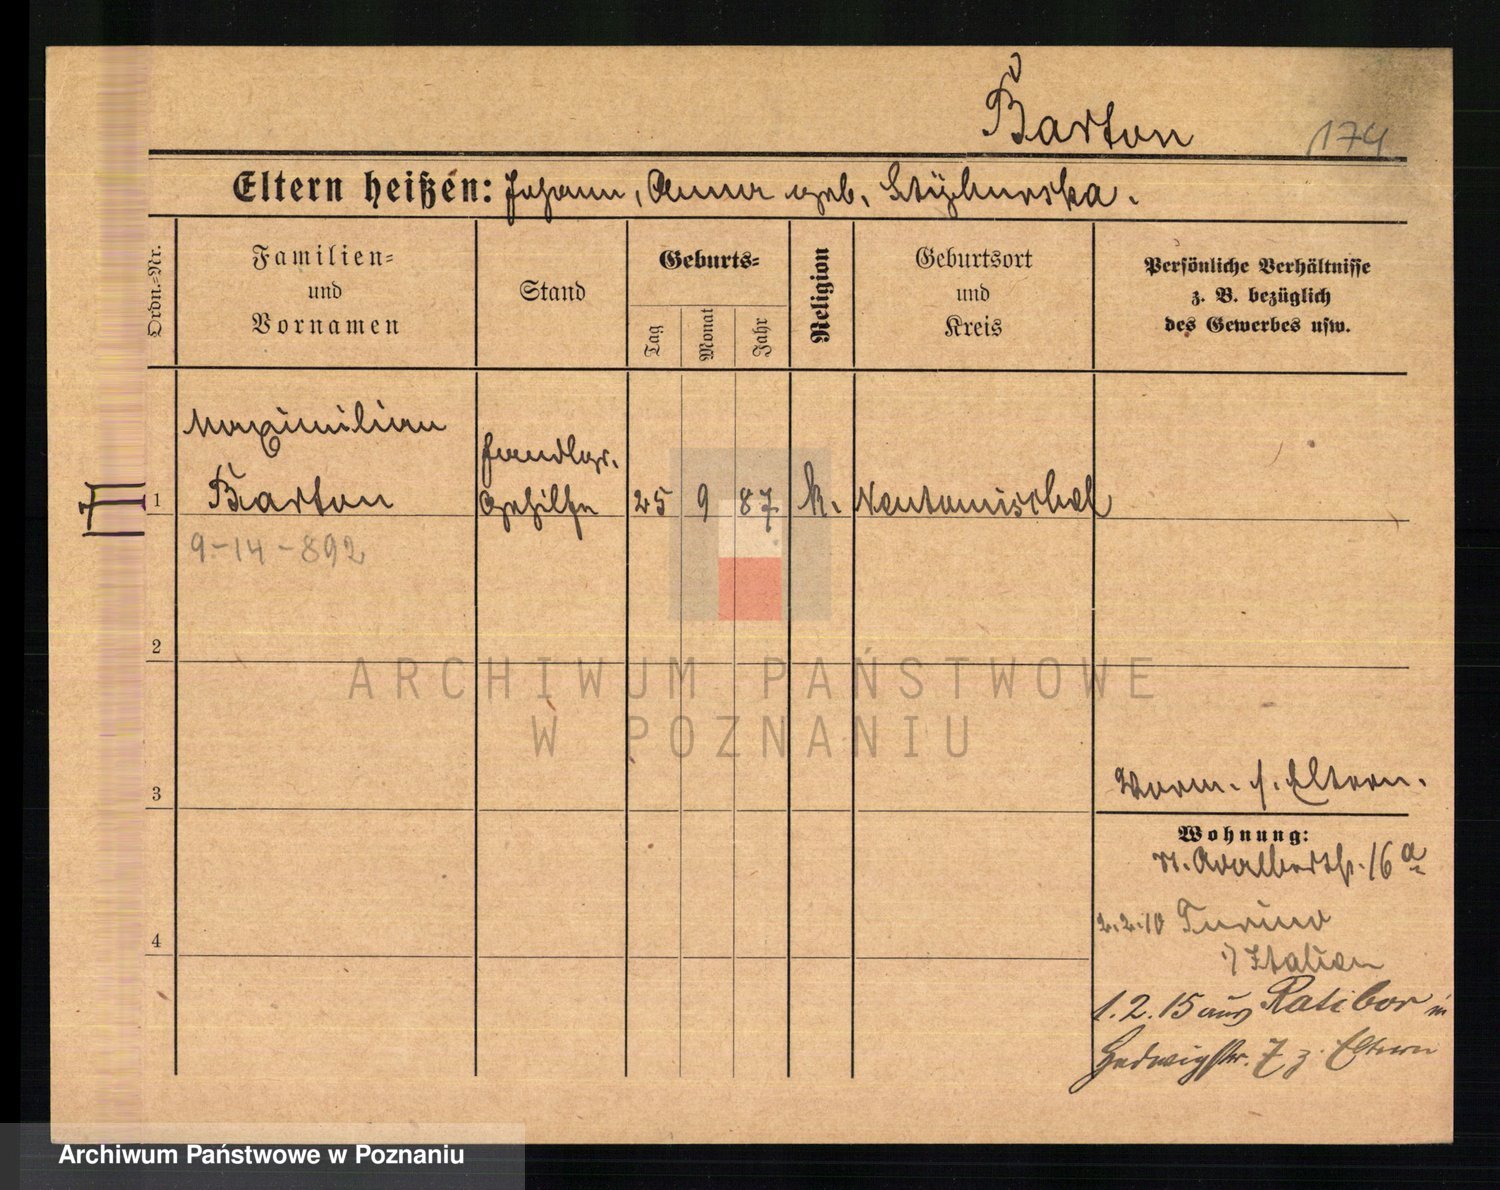 Barton
174
Eltern heißen: Johann, Anna geb.
Ordn.=Nr.
Familien=
und
Vornamen
Stand
Geburts=
Tag
Monat
Jahr
Religion
Geburtsort
und
Kreis
Persönliche Verhältnisse
z. B. bezüglich
des Gewerbes usw.
Maximilian
Handlgs.
1 Barton Gehilfe 25 9 87 k. Neutomischel
9-14-892
2
ARCHIWUM PAŃSTWOWE
W POZNANIU
3
Vorm. s. Eltern.
Wohnung:
n. Adalbertstr. 16 a
4
2.2.10 Turino
Italien
1.2.15 aus Ratibor in
Hedwigstr. 7 z. Eltern
Archiwum Państwowe w Poznaniu